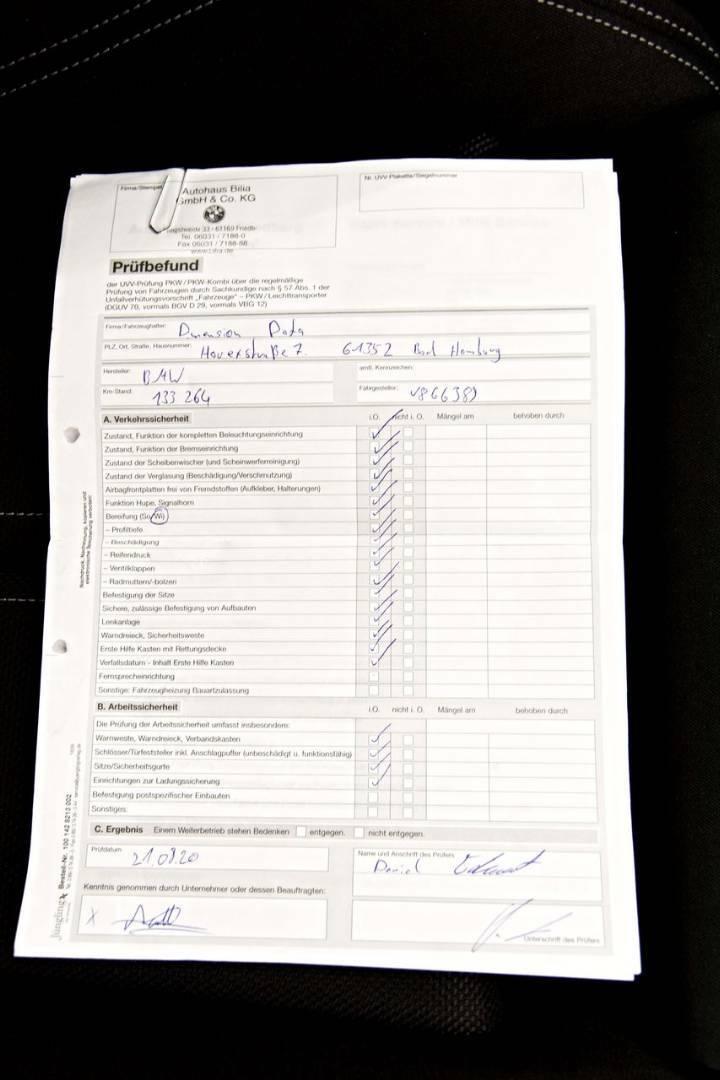 Firma/Stempel
Autohaus Bilia
GmbH & Co. KG
33 - 61169 Friedb
Tel. 06031 / 7188-0
Fax 06031 / 7188-88
Nr. UVV Plakette/Siegelnummer
Prüfbefund
der UVV-Prüfung PKW/PKW-Kombi über die regelmäßige
Prüfung von Fahrzeugen durch Sachkundige nach § 57 Abs. 1 der
Unfallverhütungsvorschrift „Fahrzeuge" – PKW/Leichttransporter
(DGUV 70, vormals BGV D 29, vormals VBG 12)
Firma/Fahrzeughalter: Dimension Data
PLZ, Ort, Straße, Hausnummer: 7. 61352 Bad Homburg
Hersteller: BMW
amtl. Kennzeichen:
Km-Stand: 133 264
Fahrgestellnr.: V866389
A. Verkehrssicherheit i.O. nicht i. O. Mängel am behoben durch
Zustand, Funktion der kompletten Beleuchtungseinrichtung
Zustand, Funktion der Bremseinrichtung
Zustand der Scheibenwischer (und Scheinwerferreinigung)
Zustand der Verglasung (Beschädigung/Verschmutzung)
Airbagfrontplatten frei von Fremdstoffen (Aufkleber, Halterungen)
Funktion Hupe, Signalhorn
Bereifung (So/Wi)
– Profiltiefe
– Beschädigung
– Reifendruck
– Ventilkappen
– Radmuttern/-bolzen
Befestigung der Sitze
Sichere, zulässige Befestigung von Aufbauten
Lenkanlage
Warndreieck, Sicherheitsweste
Erste Hilfe Kasten mit Rettungsdecke
Verfallsdatum - Inhalt Erste Hilfe Kasten
Fernsprecheinrichtung
Sonstige: Fahrzeugheizung Bauartzulassung
B. Arbeitssicherheit i.O. nicht i. O. Mängel am behoben durch
Die Prüfung der Arbeitssicherheit umfasst insbesondere:
Warnweste, Warndreieck, Verbandskasten
Schlösser/Türfeststeller inkl. Anschlagpuffer (unbeschädigt u. funktionsfähig)
Sitze/Sicherheitsgurte
Einrichtungen zur Ladungssicherung
Befestigung postspezifischer Einbauten
Sonstiges:
C. Ergebnis Einem Weiterbetrieb stehen Bedenken entgegen. nicht entgegen.
Prüfdatum
21.08.20
Name und Anschrift des Prüfers
Daniel
Kenntnis genommen durch Unternehmer oder dessen Beauftragten:
X
Unterschrift des Prüfers
Nachdruck, Nachahmung, kopieren und
elektronische Speicherung verboten!
Jüngling Bestell-Nr. 100 142 8213 002